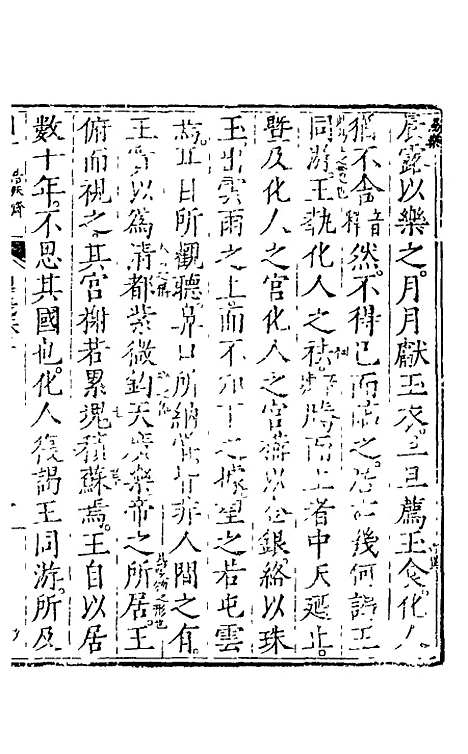 晨露以樂之月月獻玉衣旦旦薦玉食化人
猶不舍音釋然不得已而臨之居亡幾何謁王
同游王執化人之祛騰而上者中天迺止
暨及化人之宮化人之宮構以金銀絡以珠
玉出雲雨之上而不知下之據望之若屯雲
焉耳目所觀聽鼻口所納嘗皆非人間之有
王實以為清都紫微鈞天廣樂帝之所居王
俯而視之其宮榭若累塊積蘇焉王自以居
數十年不思其國也化人復謁王同游所及